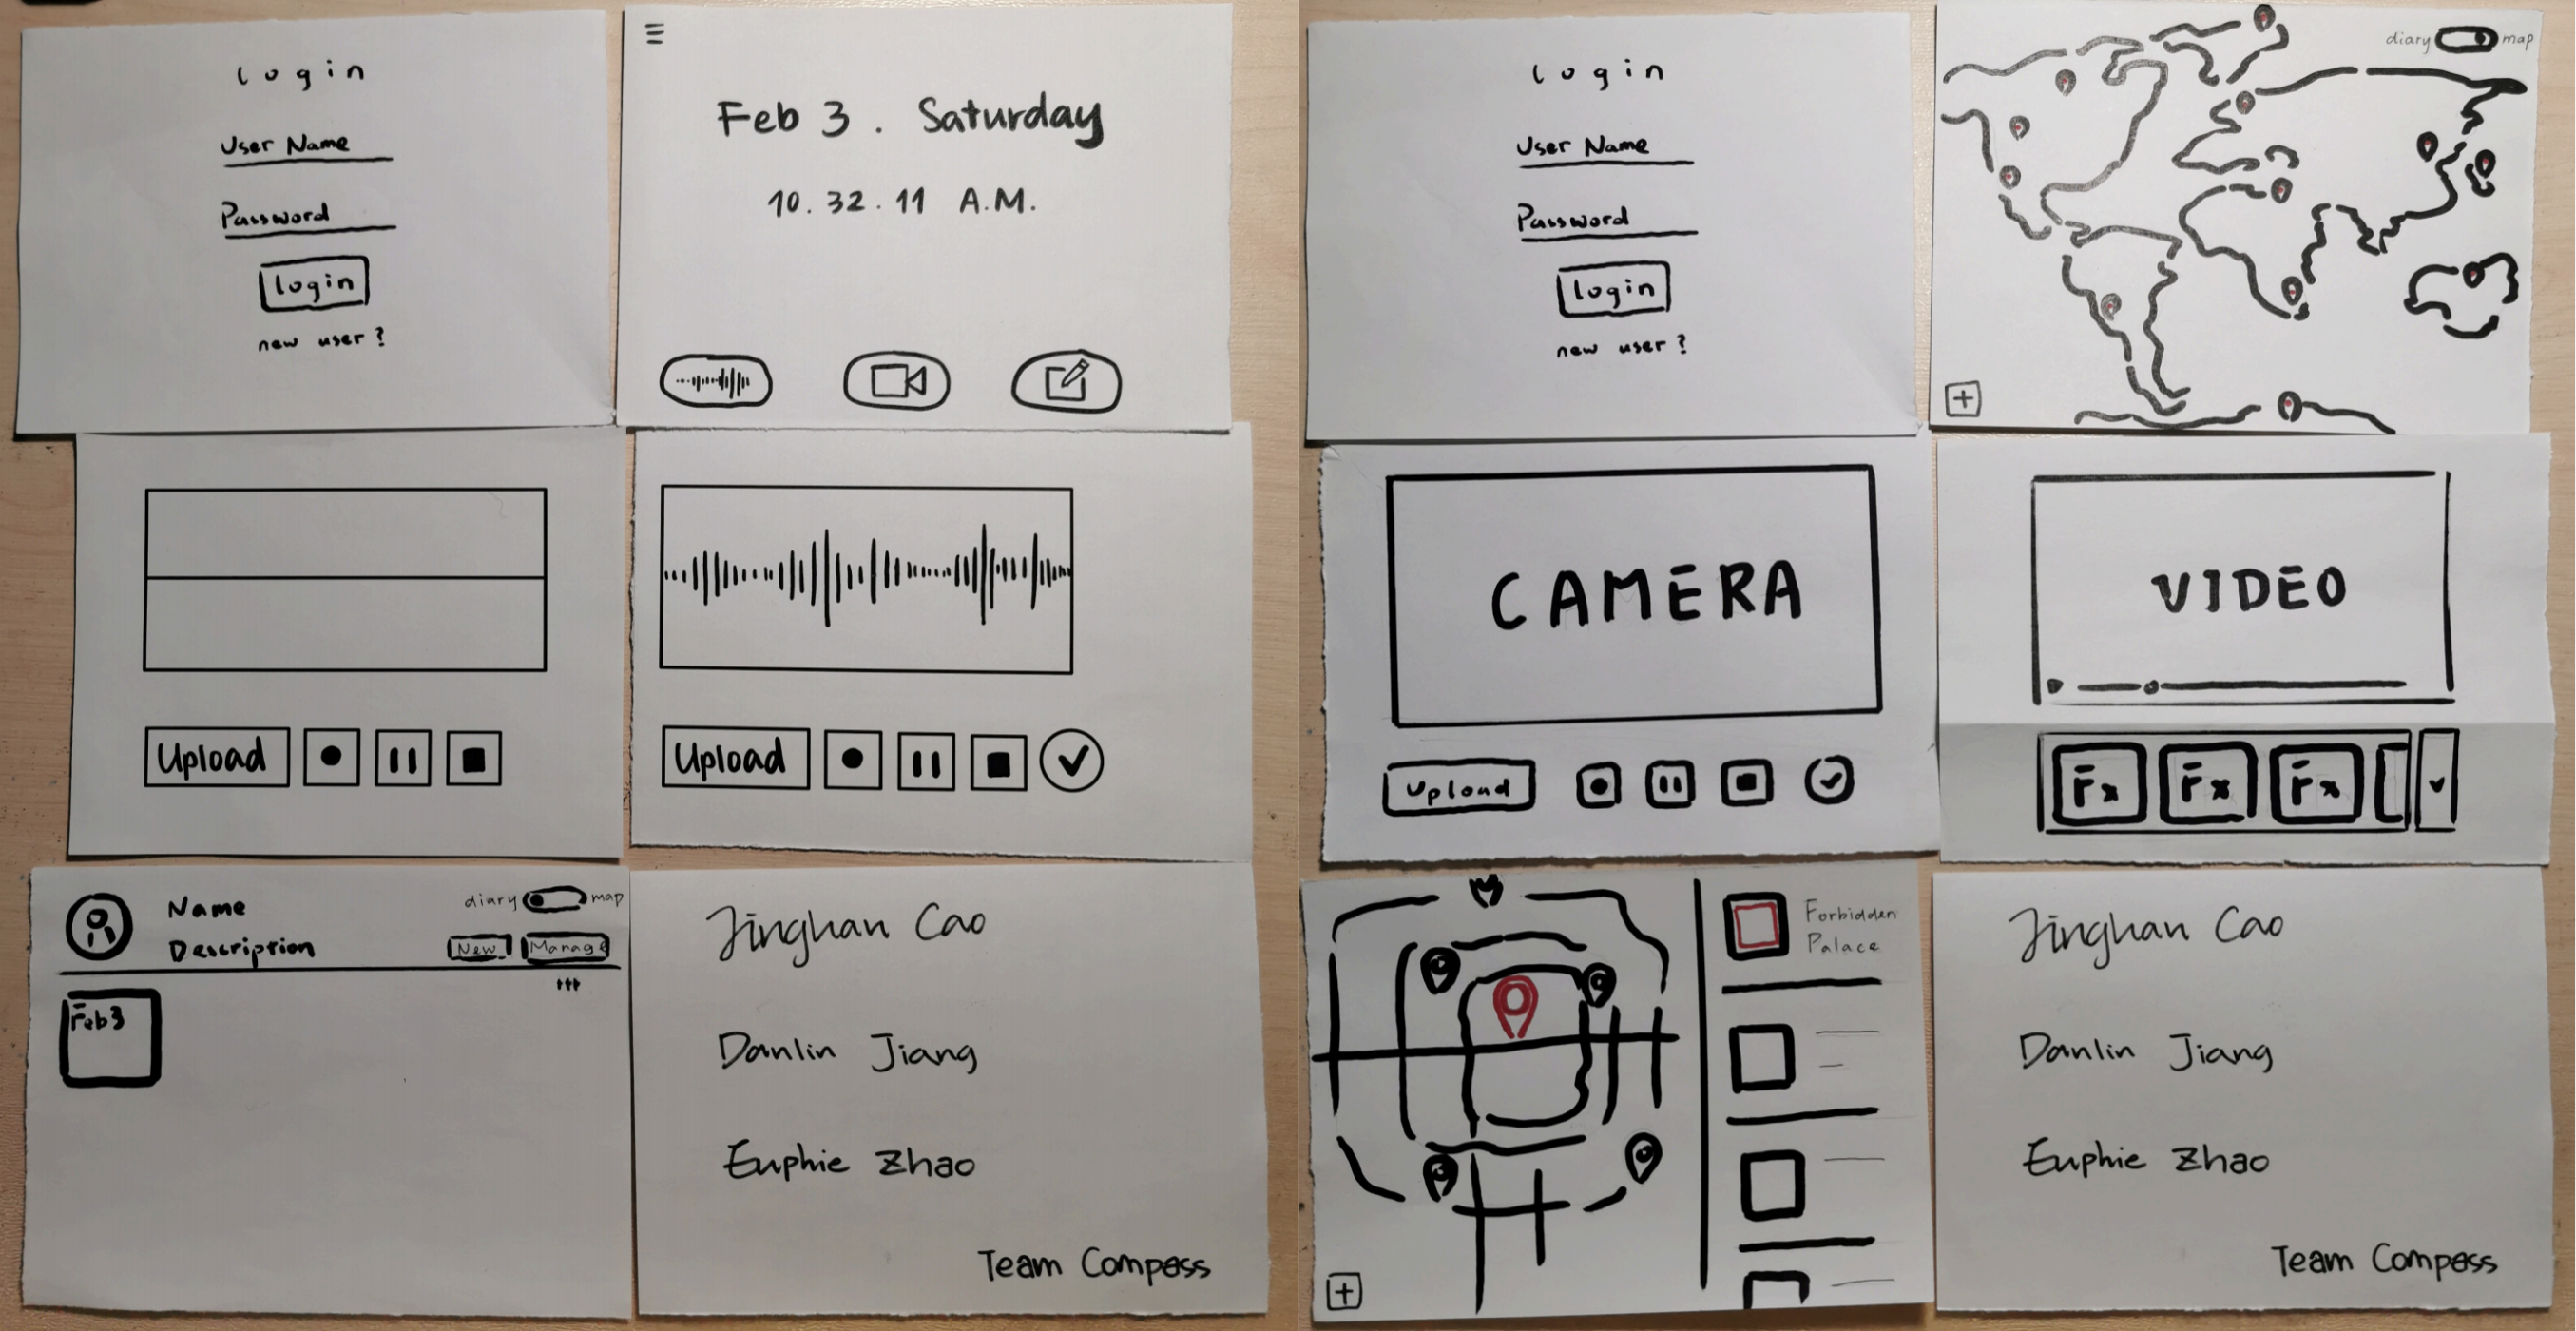 login
User Name
Password
login
new user?
Feb 3. Saturday
10. 32. 11 A.M.
login
User Name
Password
login
new user?
diary map
Upload
Upload
CAMERA
Upload
VIDEO
Fx Fx Fx
Name
Description
diary map
New Manage
Feb 3
Jinghan Cao
Danlin Jiang
Euphie Zhao
Team Compass
Forbidden
Palace
Jinghan Cao
Danlin Jiang
Euphie Zhao
Team Compass